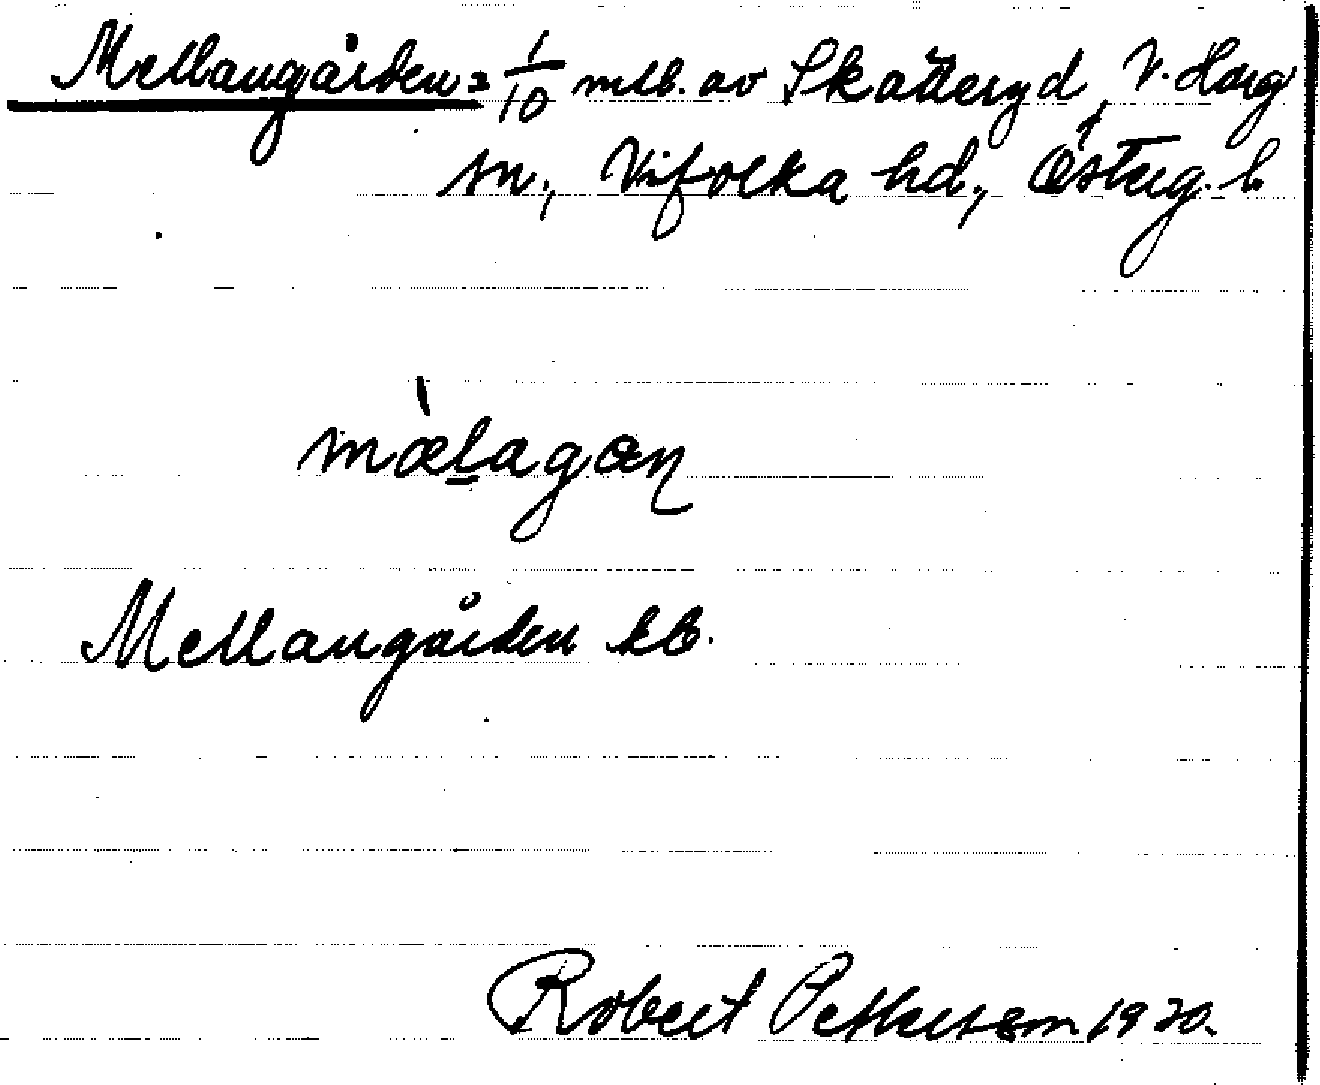 Mellangården = 1/10 mtl. av Skatteryd, V. Harg
sn, Vifolka hd, Österg. l.
mælagan
Mellangården kb.
Robert Pettersson 1920.